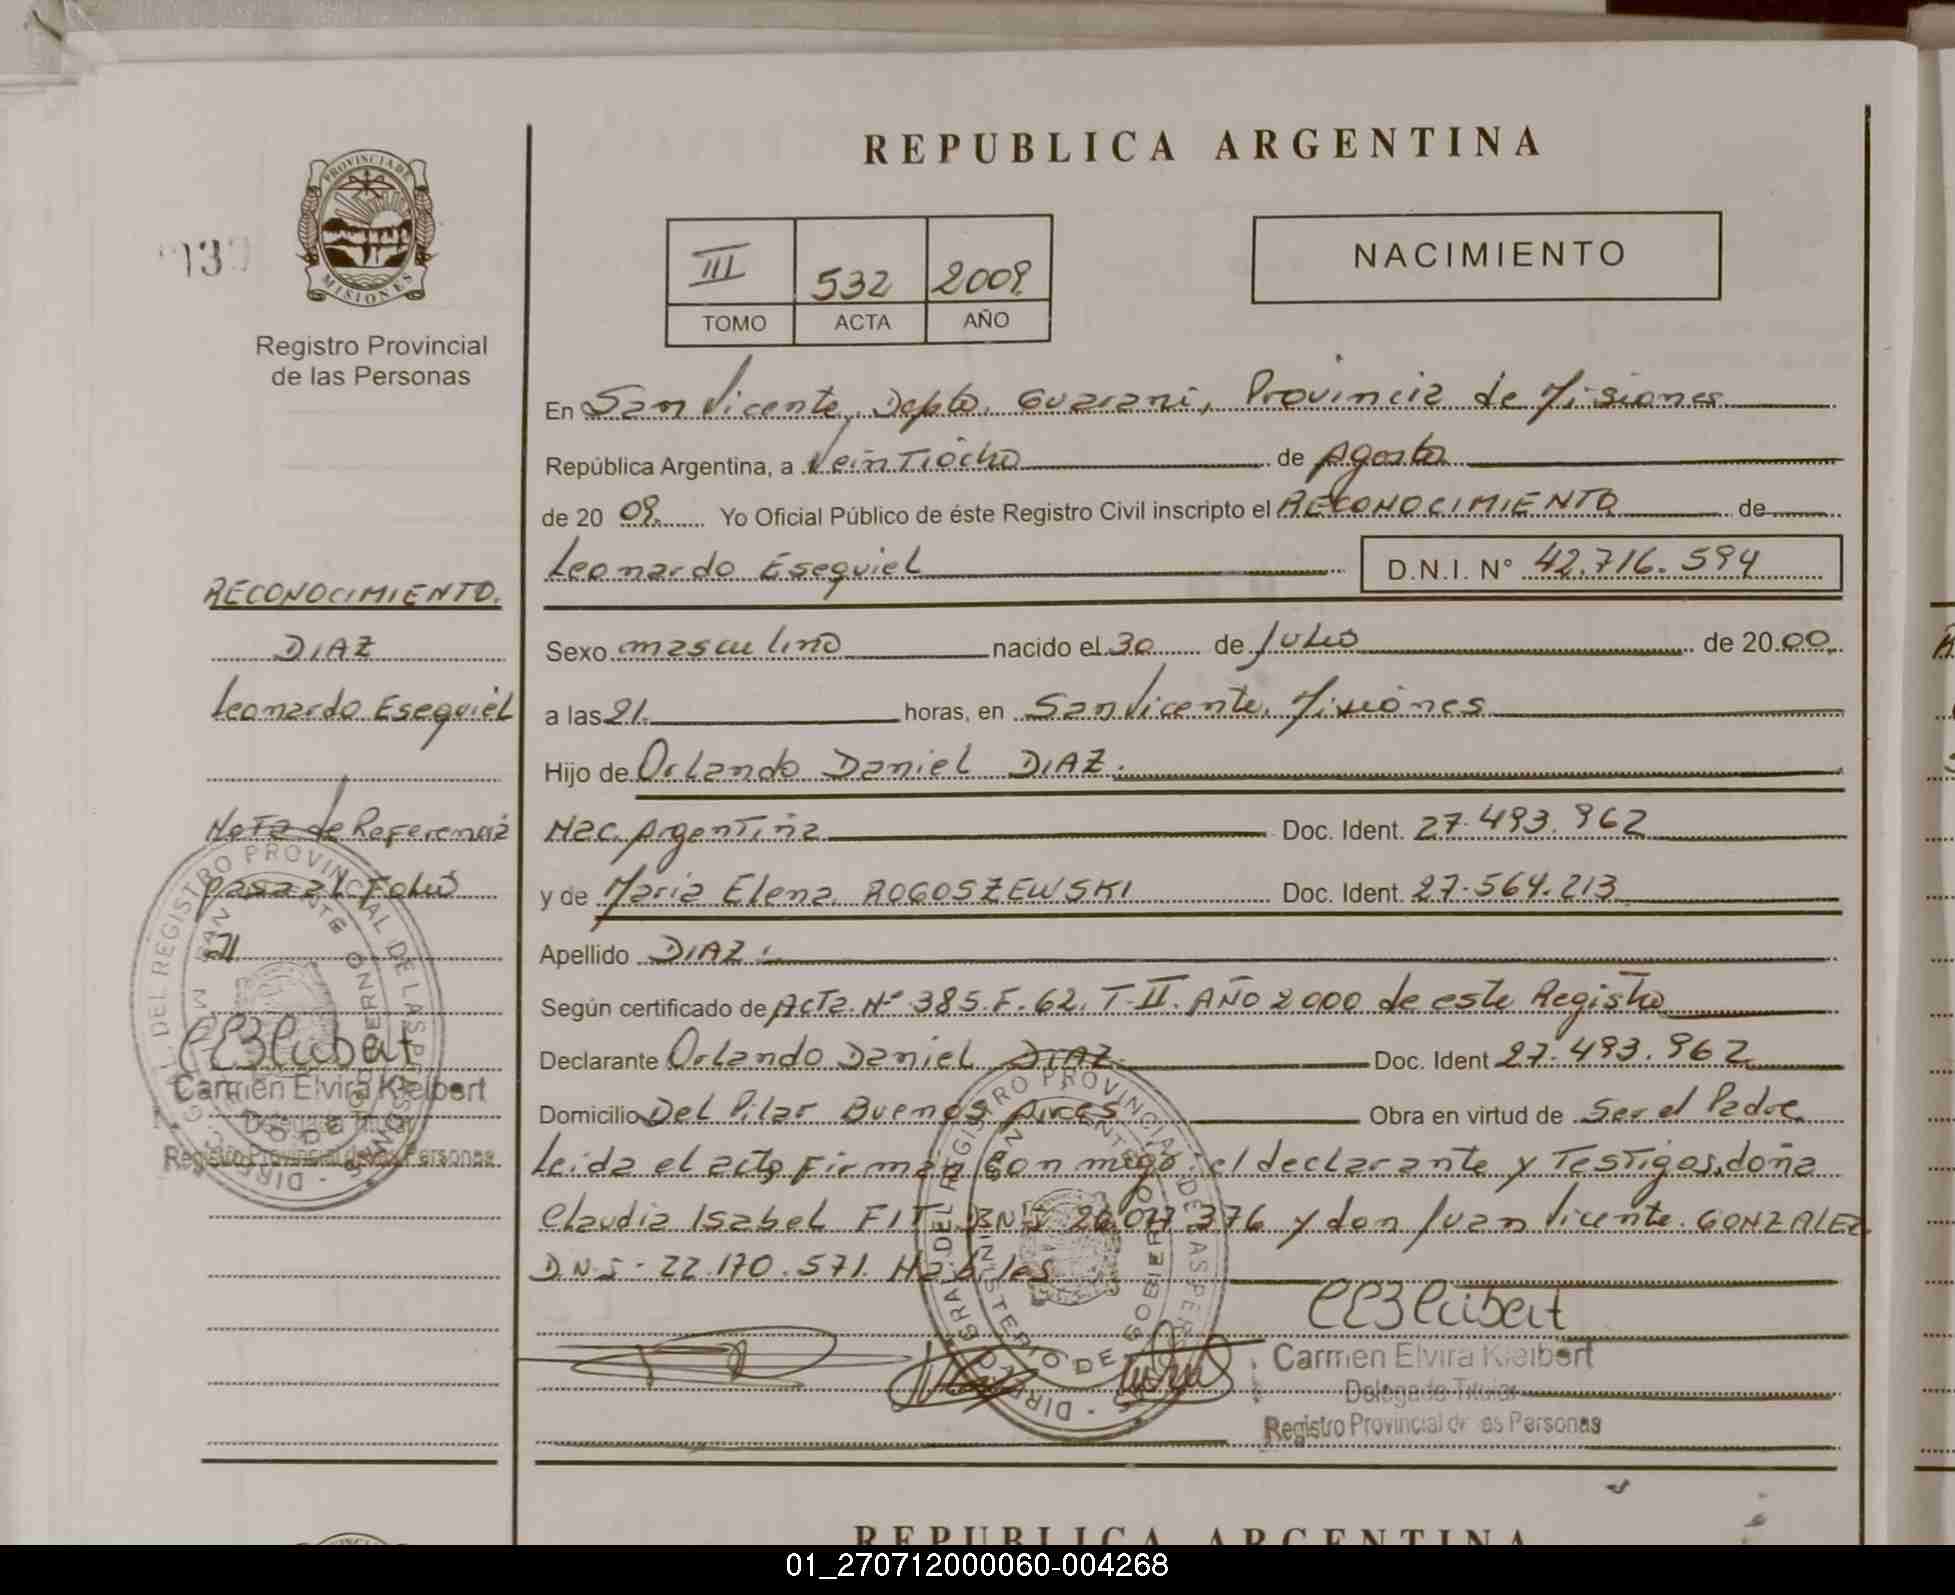 REPUBLICA ARGENTINA
PROVINCIA DE
MISIONES
Registro Provincial
de las Personas
III 532 2009
TOMO ACTA AÑO
NACIMIENTO
En San Vicente, Depto. Guarani, Provincia de Misiones
República Argentina, a Veintiocho de Agosto
de 20 09. Yo Oficial Público de éste Registro Civil inscripto el RECONOCIMIENTO de
Leonardo Esequiel D.N.I. N° 42.716.594
Sexo masculino nacido el 30 de Julio de 20.00.
a las 21. horas, en San Vicente, Misiones
Hijo de Orlando Daniel DIAZ.
Nac. Argentina Doc. Ident. 27.493.962
y de Maria Elena ROGOSZEWSKI Doc. Ident. 27.564.213
Apellido DIAZ.
Según certificado de Acta. Nº 385. F. 62. T-II. AÑO 2000 de este Registro
Declarante Orlando Daniel DIAZ Doc. Ident 27.493.962
Domicilio Del Pilar Buenos Aires Obra en virtud de Ser el Padre
Leida el acta, Firman con migo: el declarante y Testigos, doña
Claudia Isabel FIT DNI 26.077.376 y don Juan Vicente GONZALEZ
DNI- 22.170.571. Habiles
Carmen Elvira Kleibert
Delegada Titular
Registro Provincial de las Personas
RECONOCIMIENTO.
DIAZ
Leonardo Esequiel
Nota de Referencia
pasa al Folio
21.
Carmen Elvira Kleibert
Delegada Titular
Registro Provincial de las Personas
REPUBLICA ARGENTINA
01_270712000060-004268